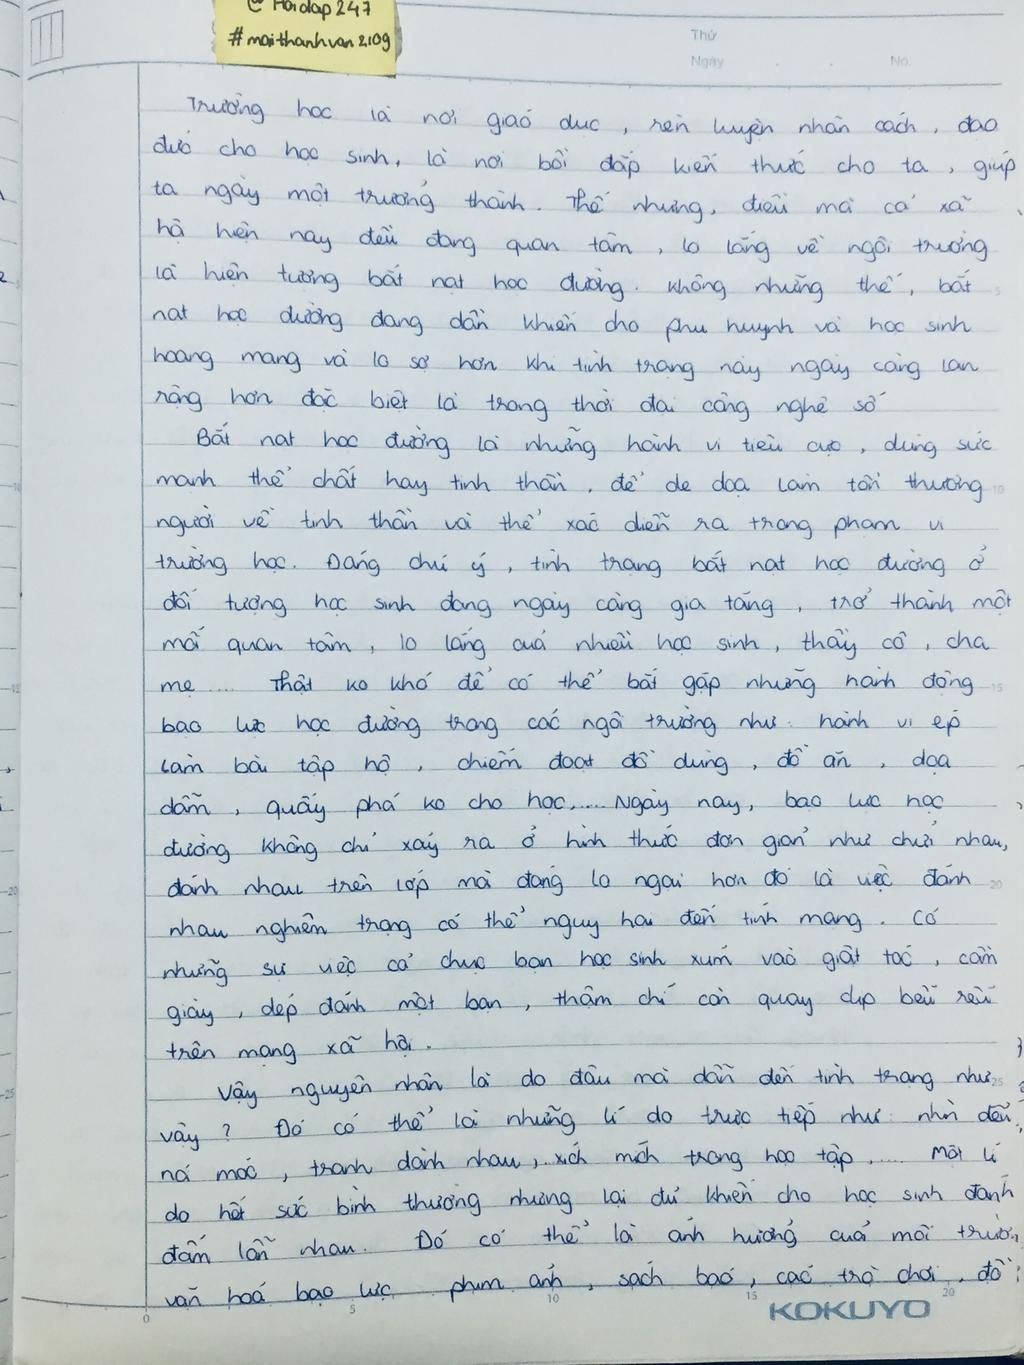 @ Hoidap247
#maithanhvan2109
Thứ
Ngày
No.
Trường học là nơi giáo dục, rèn luyện nhân cách, đạo
đức cho học sinh, là nơi bồi đắp kiến thức cho ta, giúp
ta ngày một trưởng thành. Thế nhưng, điều mà cả xã
hội hiện nay đều đang quan tâm, lo lắng về ngôi trường
là hiện tượng bắt nạt học đường. Không những thế, bắt
nạt học đường đang dần khiến cho phụ huynh và học sinh
hoang mang và lo sợ hơn khi tình trạng này ngày càng lan
rộng hơn đặc biệt là trong thời đại công nghệ số
Bắt nạt học đường là những hành vi tiêu cực, dùng sức
mạnh thể chất hay tinh thần, để đe dọa làm tổn thương
người về tinh thần và thể xác diễn ra trong phạm vi
trường học. Đáng chú ý, tình trạng bắt nạt học đường ở
đối tượng học sinh đang ngày càng gia tăng, trở thành một
mối quan tâm, lo lắng của nhiều học sinh, thầy cô, cha
mẹ .... Thật ko khó để có thể bắt gặp những hành động
bạo lực học đường trong các ngôi trường như: hành vi ép
làm bài tập hộ, chiếm đoạt đồ dùng, đồ ăn, dọa
dẫm, quấy phá ko cho học,.... Ngày nay, bạo lực học
đường không chỉ xảy ra ở hình thức đơn giản như chửi nhau,
đánh nhau trên lớp mà đáng lo ngại hơn đó là việc đánh
nhau nghiêm trạng có thể nguy hại đến tính mạng. Có
những sự việc cả chục bạn học sinh xúm vào giật tóc, cầm
giày, dép đánh một bạn, thậm chí còn quay clip bêu rếu
trên mạng xã hội.
Vậy nguyên nhân là do đâu mà dẫn đến tình trạng như
vậy? Đó có thể là những lí do trực tiếp như: nhìn đểu,
nói móc, tranh dành nhau, xích mích trong học tập,.... Một lí
do hết sức bình thường nhưng lại đủ khiến cho học sinh đánh
đấm lẫn nhau. Đó có thể là ảnh hưởng của môi trườn
văn hoá bạo lực phim ảnh, sách báo, các trò chơi, đồ
KOKUYO
0 5 10 15 20